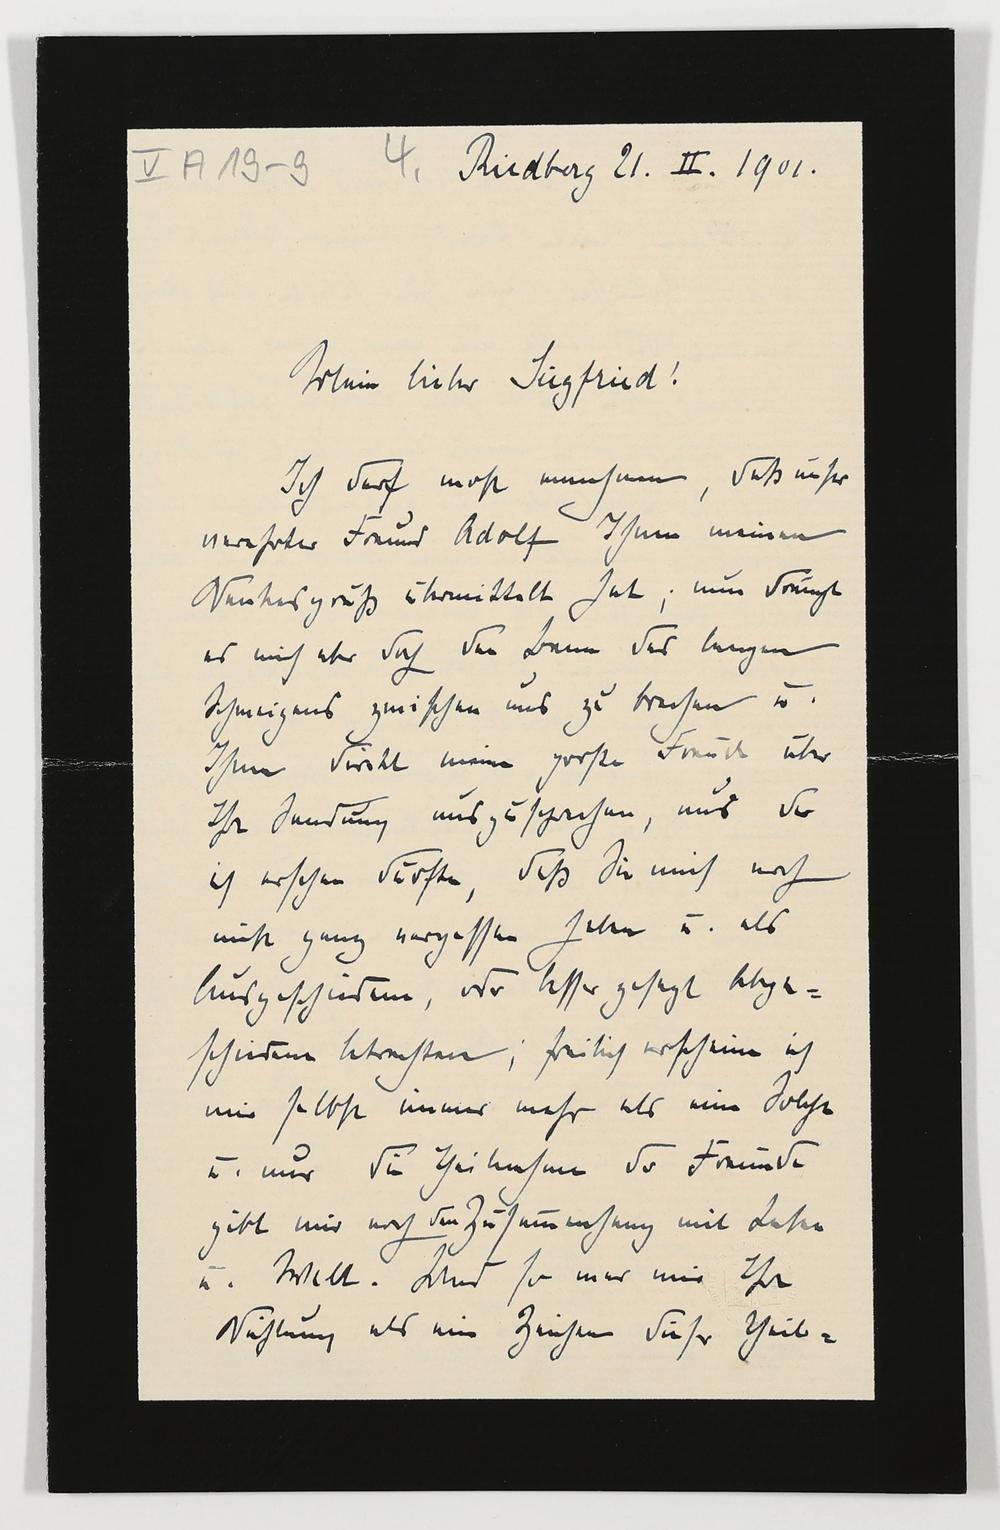 V A 19-9 4. Riedberg 21. II. 1901.
Mein lieber Siegfried!
Ich darf wohl annehmen, daß unser
verehrter Freund Adolf Ihnen meinen
Dankesgruß übermittelt hat; nun drängt
es mich aber doch den Bann des langen
Schweigens zwischen uns zu brechen u.
Ihnen direkt meine große Freude über
Ihre Sendung auszusprechen, aus der
ich ersehen durfte, daß Sie mich noch
nicht ganz vergessen haben u. als
Ausgeschiedenen, oder besser gesagt Abge=
schiedenen betrachten; freilich erscheine ich
mir selbst immer mehr als ein Solcher
u. nur die Theilnahme der Freunde
gibt mir noch den Zusammenhang mit Leben
u. Welt. Und so war mir Ihre
Dichtung als ein Zeichen dieser Theil=